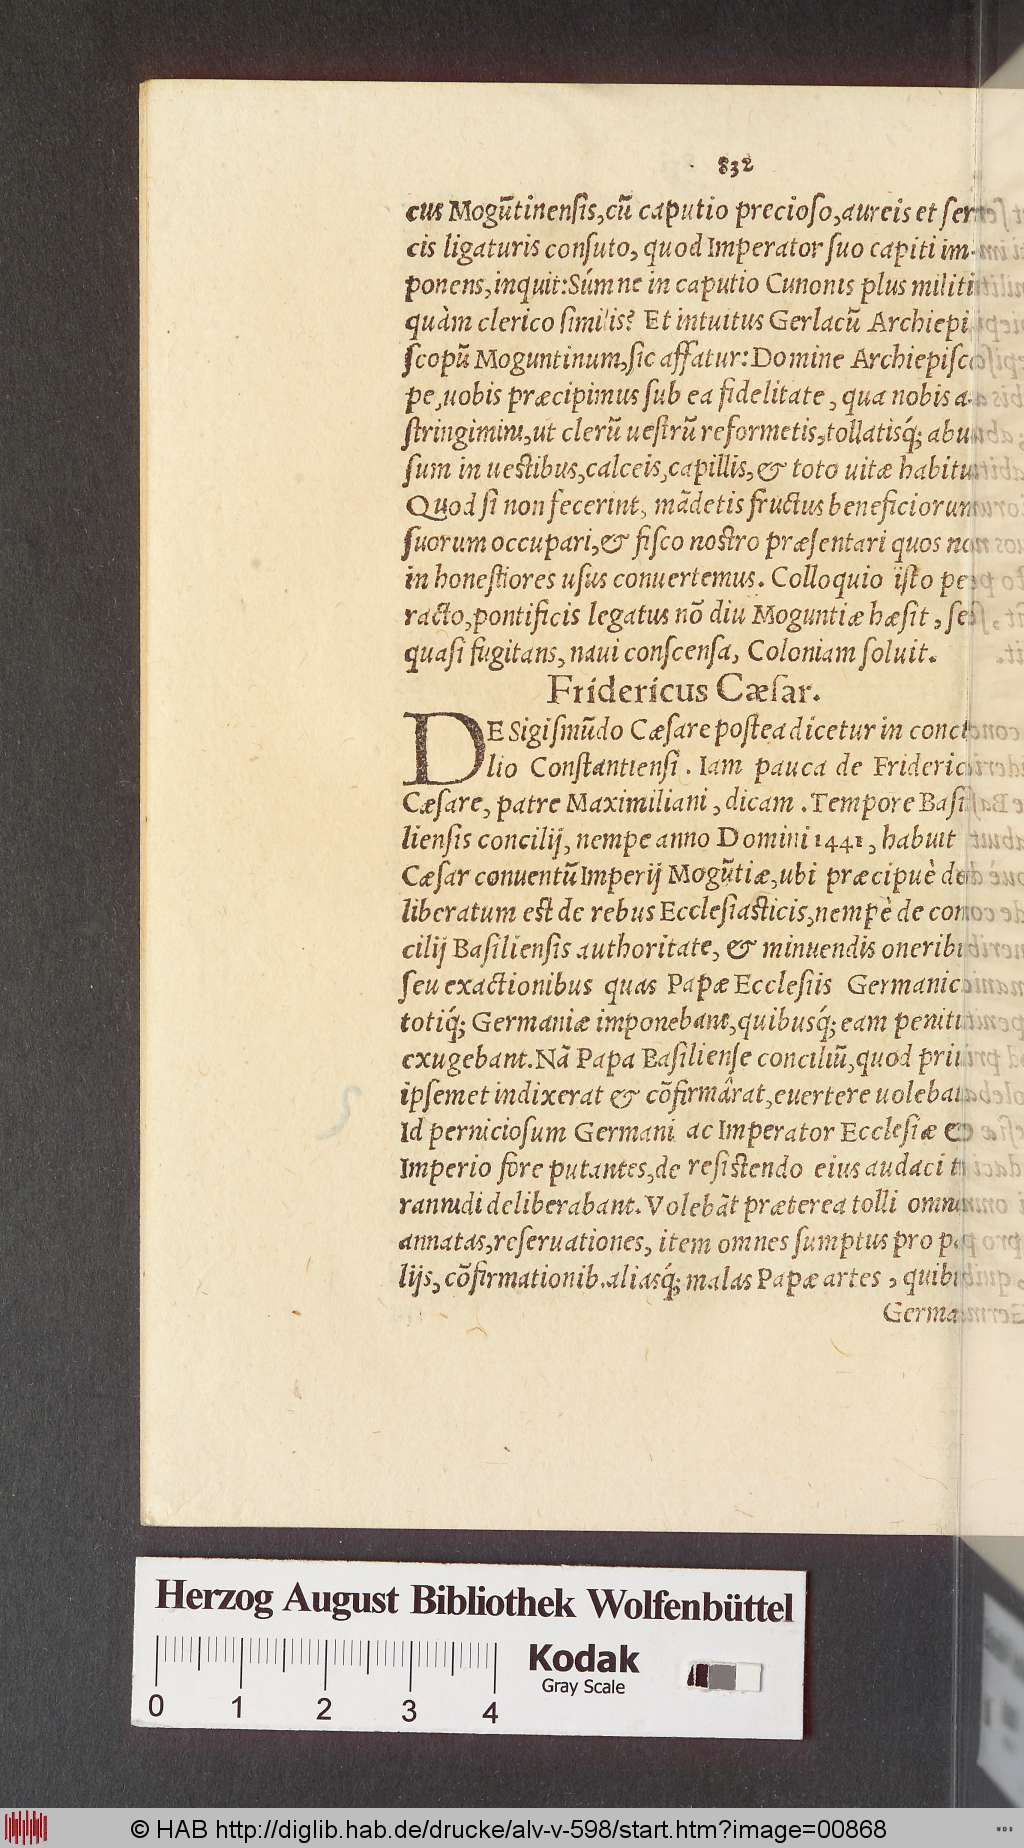 832
cus Mogũtinensis,cũ caputio precioso,aureis et seri
cis ligaturis consuto, quod Imperator suo capiti im-
ponens,inquit:Súmne in caputio Cunonis plus militi
quàm clerico similis? Et intuitus Gerlacũ Archiepi
scopũ Moguntinum,sic affatur:Domine Archiepisco
pe,uobis præcipimus sub ea fidelitate, qua nobis a-
stringimini,ut clerũ uestrũ reformetis,tollatisq́; abu
sum in uestibus,calceis,capillis,& toto uitæ habitu.
Quod si non fecerint, mãdetis fructus beneficiorum
suorum occupari,& fisco nostro præsentari quos nos
in honestiores usus conuertemus. Colloquio isto pe
racto,pontificis legatus nõ diu Moguntiæ hæsit, sed
quasi fugitans, naui conscensa, Coloniam soluit.
Fridericus Cæsar.
DE Sigismũdo Cæsare postea dicetur in conci
lio Constantiensi. Iam pauca de Friderico
Cæsare, patre Maximiliani, dicam. Tempore Basi
liensis concilij, nempe anno Domini 1441, habuit
Cæsar conuentũ Imperij Mogũtiæ,ubi præcipuè de
liberatum est de rebus Ecclesiasticis,nempè de con
cilij Basiliensis authoritate, & minuendis oneribus
seu exactionibus quas Papæ Ecclesiis Germanicis
totiq́; Germaniæ imponebant,quibusq́; eam penitus
exugebant.Nã Papa Basiliense conciliũ,quod prius
ipsemet indixerat & cõfirmârat,euertere uolebat.
Id perniciosum Germani ac Imperator Ecclesiæ &
Imperio fore putantes,de resistendo eius audaci ty
rannidi deliberabant. Volebãt præterea tolli omnes
annatas,reseruationes, item omnes sumptus pro pal
lijs, cõfirmationib.aliasq́; malas Papæ artes, quibus
Germa
Herzog August Bibliothek Wolfenbüttel
Kodak
Gray Scale
0 1 2 3 4
© HAB http://diglib.hab.de/drucke/alv-v-598/start.htm?image=00868